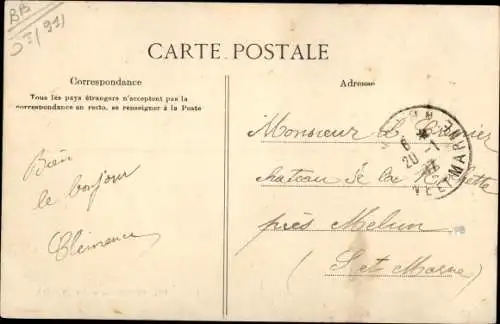 BB
CARTE POSTALE
Correspondance
Tous les pays étrangers n'acceptent pas la
correspondance au recto, se renseigner à la Poste
Adresse
Bien
le bonjour
Clémence
Monsieur
château de la
près Melun
(S. et Marne)
20
ET MARNE